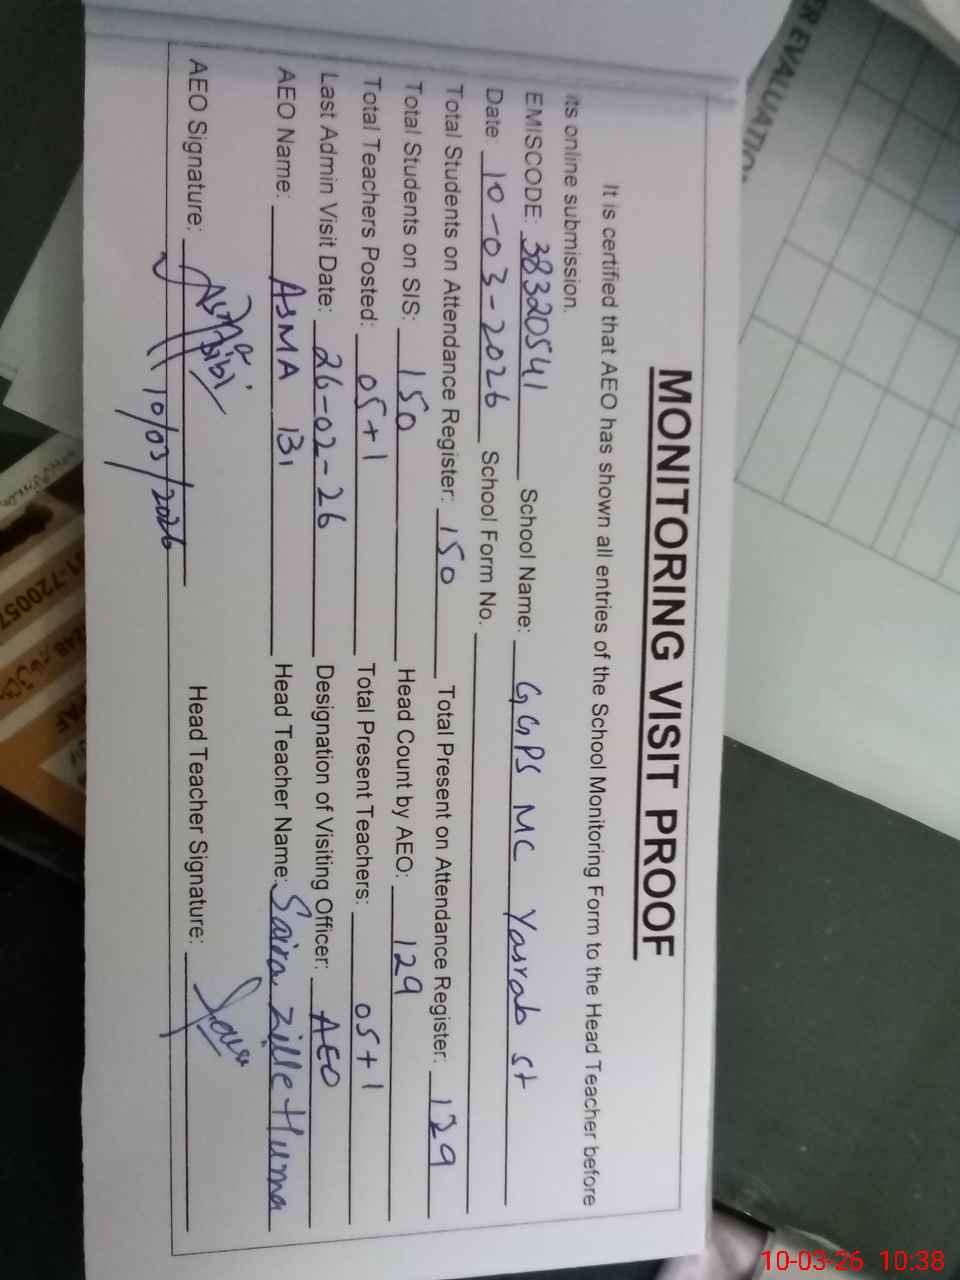 MONITORING VISIT PROOF
It is certified that AEO has shown all entries of the School Monitoring Form to the Head Teacher before
its online submission.
EMISCODE: 38320541 School Name: GGPS MC Yasrab st
Date: 10-03-2026 School Form No.
Total Students on Attendance Register: 150 Total Present on Attendance Register: 129
Total Students on SIS: 150 Head Count by AEO: 129
Total Teachers Posted: 05+1 Total Present Teachers: 05+1
Last Admin Visit Date: 26-02-26 Designation of Visiting Officer: AEO
AEO Name: ASMA Head Teacher Name: Saira Zille Huma
AEO Signature: Head Teacher Signature:
10/03/2026
ER EVALUATION
10-03-26 10:38